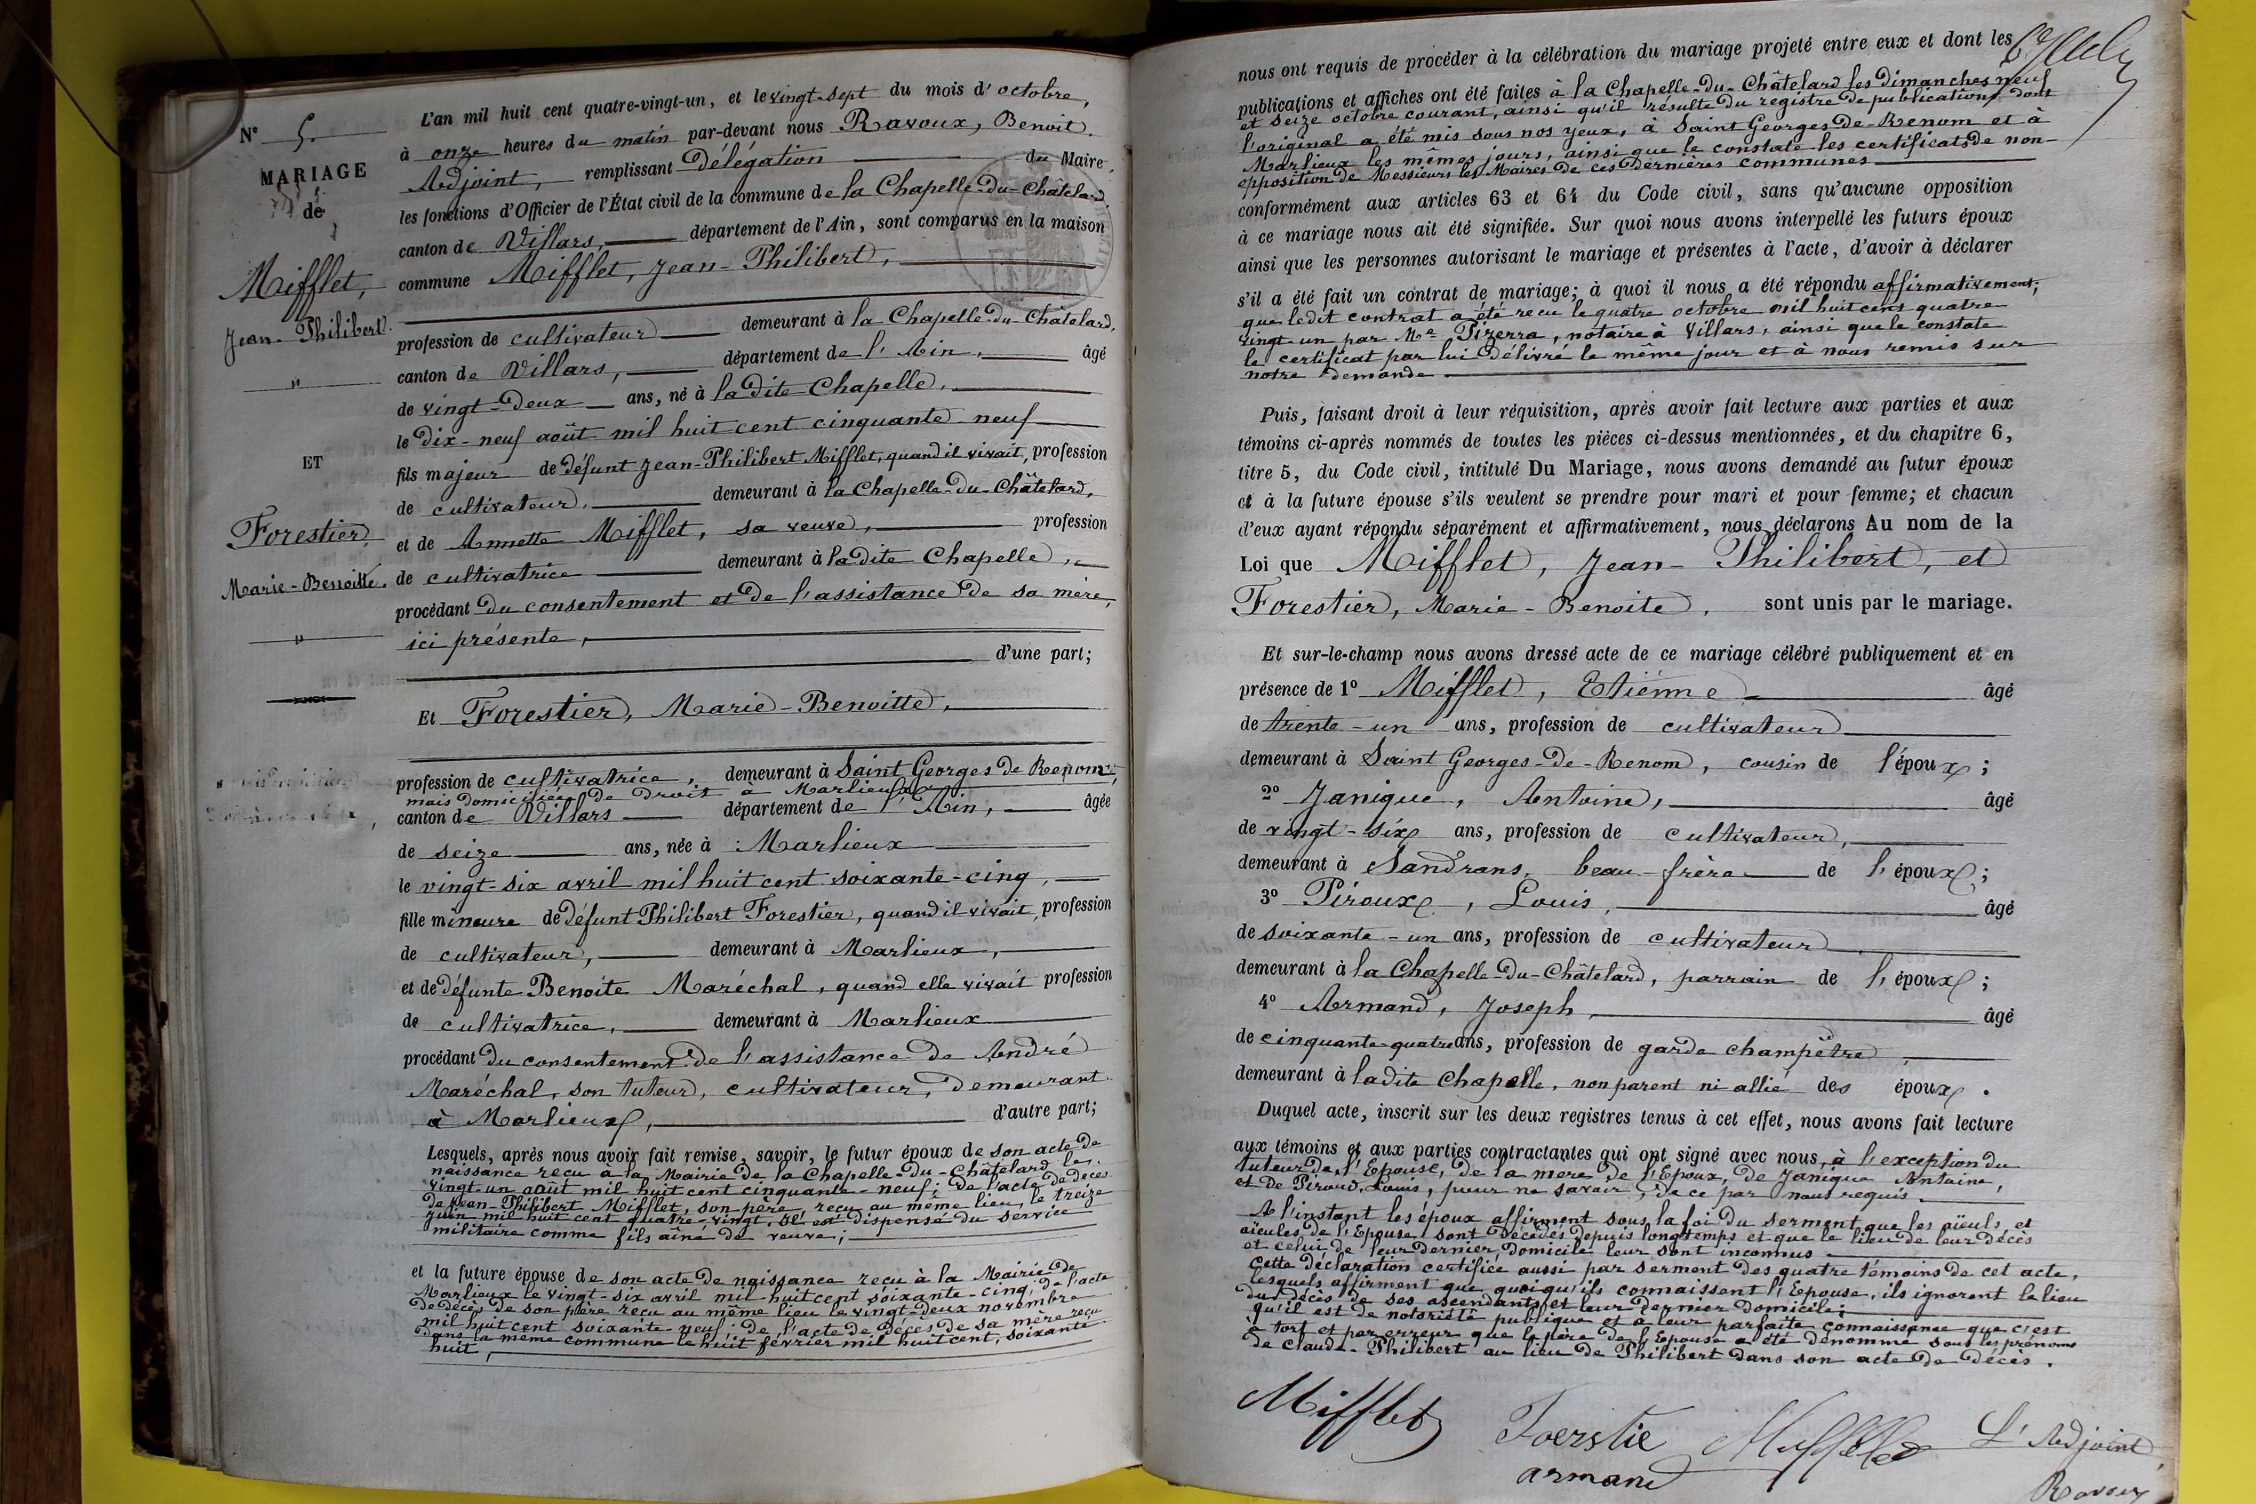 N° 5.
MARIAGE
de
Mifflet,
Jean-Philibert.
"
ET
Forestier,
Marie-Benoitte.
"
L'an mil huit cent quatre-vingt-un, et le vingt-sept du mois d'octobre,
à onze heures du matin par-devant nous Ravoux, Benoit.
Adjoint, remplissant Délégation du Maire,
les fonctions d'Officier de l'État civil de la commune de la Chapelle-du-Châtelard,
canton de Villars, département de l'Ain, sont comparus en la maison
commune Mifflet, Jean-Philibert,
profession de cultivateur demeurant à la Chapelle-du-Châtelard,
canton de Villars, département de l'Ain, âgé
de vingt-deux ans, né à ladite Chapelle,
le dix-neuf août mil huit cent cinquante-neuf
fils majeur de défunt Jean-Philibert Mifflet, quand il vivait, profession
de cultivateur, demeurant à la Chapelle-du-Châtelard,
et de Annette Mifflet, sa veuve, profession
de cultivatrice demeurant à ladite Chapelle,
procédant du consentement et de l'assistance de sa mère,
ici présente,
d'une part;
Et Forestier, Marie-Benoitte,
profession de cultivatrice, demeurant à Saint Georges de Renom,
mais domiciliée de droit à Marlieux
canton de Villars département de l'Ain, âgée
de seize ans, née à Marlieux
le vingt-six avril mil huit cent soixante-cinq,
fille mineure de défunt Philibert Forestier, quand il vivait, profession
de cultivateur, demeurant à Marlieux,
et de défunte Benoite Maréchal, quand elle vivait profession
de cultivatrice, demeurant à Marlieux
procédant du consentement de l'assistance de André
Maréchal, son tuteur, cultivateur, demeurant
à Marlieux, d'autre part;
Lesquels, après nous avoir fait remise, savoir, le futur époux de son acte de
naissance reçu à la Mairie de la Chapelle-du-Châtelard le
vingt-un août mil huit cent cinquante-neuf; de l'acte de décès
de Jean-Philibert Mifflet, son père, reçu au même lieu, le treize
juin mil huit cent quatre-vingt, et est dispensé du service
militaire comme fils aîné de veuve;
et la future épouse de son acte de naissance reçu à la Mairie de
Marlieux le vingt-six avril mil huit cent soixante-cinq, de l'acte
de décès de son père reçu au même lieu le vingt-deux novembre
mil huit cent soixante-neuf; de l'acte de décès de sa mère reçu
dans la même commune le huit février mil huit cent soixante
huit,
nous ont requis de procéder à la célébration du mariage projeté entre eux et dont les
publications et affiches ont été faites à la Chapelle-du-Châtelard les dimanches neuf
et seize octobre courant, ainsi qu'il résulte du registre de publications dont
l'original a été mis sous nos yeux, à Saint Georges-de-Renom et à
Marlieux les mêmes jours, ainsi que le constate les certificats de non-
opposition de Messieurs les Maires de ces dernières communes
conformément aux articles 63 et 64 du Code civil, sans qu'aucune opposition
à ce mariage nous ait été signifiée. Sur quoi nous avons interpellé les futurs époux
ainsi que les personnes autorisant le mariage et présentes à l'acte, d'avoir à déclarer
s'il a été fait un contrat de mariage; à quoi il nous a été répondu affirmativement;
que ledit contrat a été reçu le quatre octobre mil huit cent quatre
vingt-un par Me Pizerra, notaire à Villars, ainsi que le constate
le certificat par lui délivré le même jour et à nous remis sur
notre demande
Puis, faisant droit à leur réquisition, après avoir fait lecture aux parties et aux
témoins ci-après nommés de toutes les pièces ci-dessus mentionnées, et du chapitre 6,
titre 5, du Code civil, intitulé Du Mariage, nous avons demandé au futur époux
et à la future épouse s'ils veulent se prendre pour mari et pour femme; et chacun
d'eux ayant répondu séparément et affirmativement, nous déclarons Au nom de la
Loi que Mifflet, Jean-Philibert, et
Forestier, Marie-Benoite, sont unis par le mariage.
Et sur-le-champ nous avons dressé acte de ce mariage célébré publiquement et en
présence de 1° Mifflet, Etienne âgé
de trente-un ans, profession de cultivateur
demeurant à Saint Georges-de-Renom, cousin de l'époux;
2° Janique, Antoine, âgé
de vingt-six ans, profession de cultivateur,
demeurant à Sandrans, beau-frère de l'époux;
3° Piroux, Louis, âgé
de soixante-un ans, profession de cultivateur
demeurant à la Chapelle-du-Châtelard, parrain de l'époux;
4° Armand, Joseph, âgé
de cinquante-quatre ans, profession de garde champêtre,
demeurant à ladite Chapelle, non parent ni allié des époux.
Duquel acte, inscrit sur les deux registres tenus à cet effet, nous avons fait lecture
aux témoins et aux parties contractantes qui ont signé avec nous, à l'exception du
tuteur de l'Epouse, de la mère de l'Epoux, de Janique Antoine,
et de Piroud, Louis, pour ne savoir, de ce par nous requis.
A l'instant les époux affirment sous la foi du serment que les aïeuls et
aïeules de l'Epouse sont décédés depuis longtemps et que le lieu de leur décès
et celui de leur dernier domicile leur sont inconnus
Cette déclaration certifiée aussi par serment des quatre témoins de cet acte,
lesquels affirment que quoiqu'ils connaissent l'Epouse, ils ignorent le lieu
du décès de ses ascendants et leur dernier domicile;
qu'il est de notoriété publique et à leur parfaite connaissance que c'est
à tort et par erreur que le père de l'Epouse a été dénommé sous les prénoms
de Claude-Philibert au lieu de Philibert dans son acte de décès.
Mifflet Foerstie Mifflet L'Adjoint,
armand Ravoux